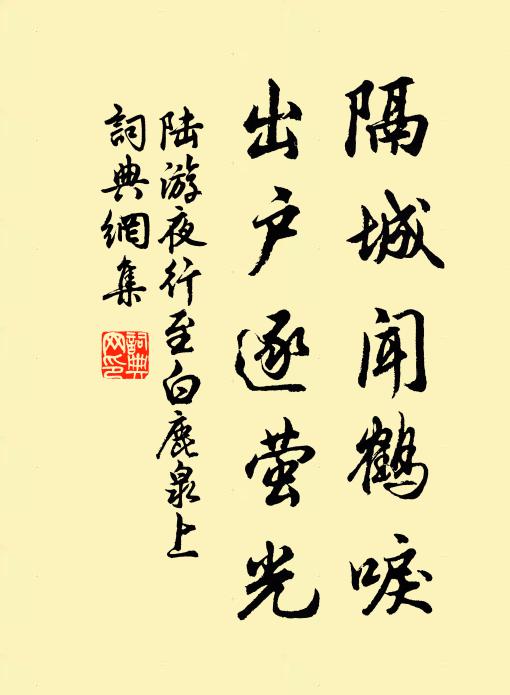 隔城闻鹤唳
出户逐萤光
陆游夜行至白鹿泉上
詞典網集
詞典網印